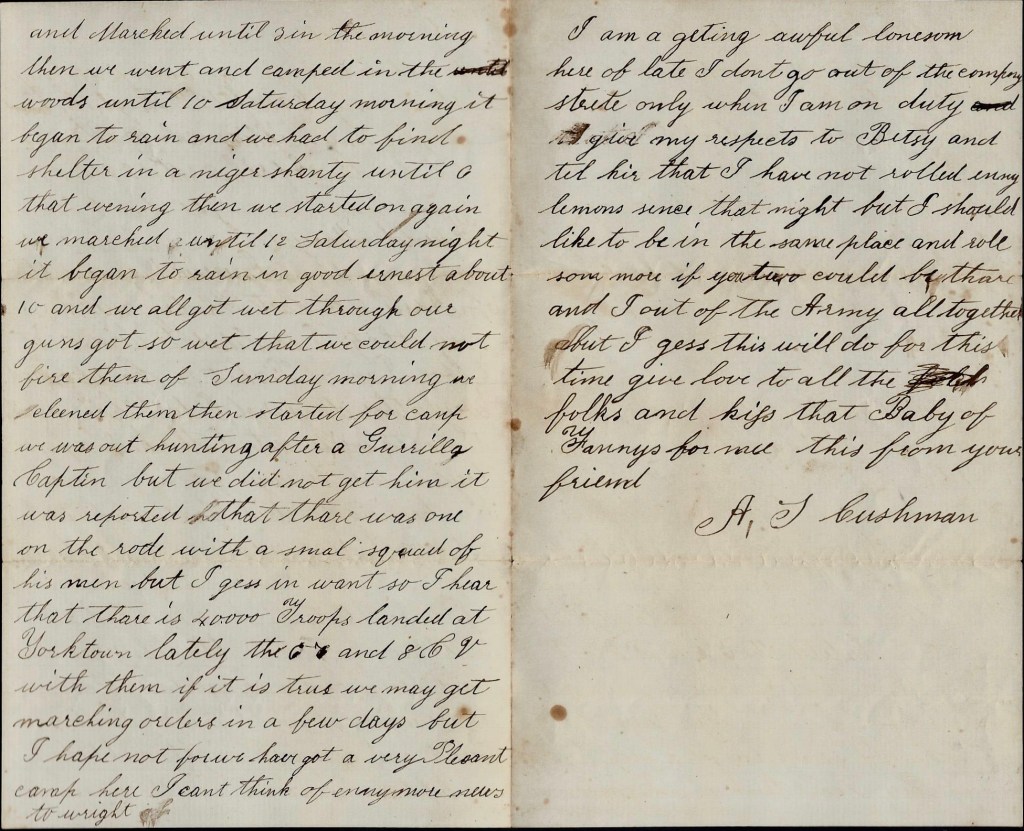 and Marched until 3 in the morning
then we went and camped in the
woods until 10 Saturday morning it
began to rain and we had to find
shelter in a niger shanty until 6
that evening then we started on again
we marched until 12 Saturday night
it began to rain in good ernest about
10 and we all got wet through our
guns got so wet that we could not
fire them of Sunday morning we
cleened them then started for camp
we was out hunting after a Gurrilla
Captin but we did not get him it
was reported that thare was one
on the rode with a smal squad of
his men but I gess in want so I hear
that thare is 40000 Troops landed at
Yorktown lately the 6 7 and 8 C V
with them if it is true we may get
marching orders in a few days but
I hape not for we have got a very Plesant
camp here I cant think of enny more news
to wright
I am a geting awful lonesom
here of late I dont go out of the company
strete only when I am on duty
give my respects to Betsy and
tel hir that I have not rolled enny
lemons sence that night but I should
like to be in the same place and role
som more if you two could be thare
and I out of the Army all together
but I gess this will do for this
time give love to all the
folks and kiss that Baby of
Fannys for mee this from your
friend
A, S Cushman